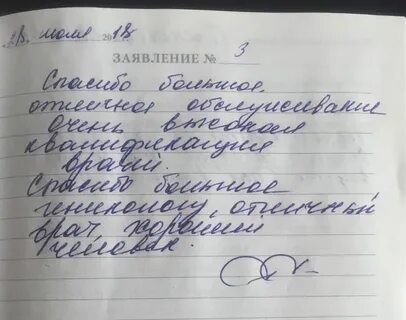 «28» июля 2018
ЗАЯВЛЕНИЕ № 3
Спасибо большое
отличное обслуживание
очень высокая
квалификация
врачей.
Спасибо большое
геникологу, отличный
врач, хороший
человек.